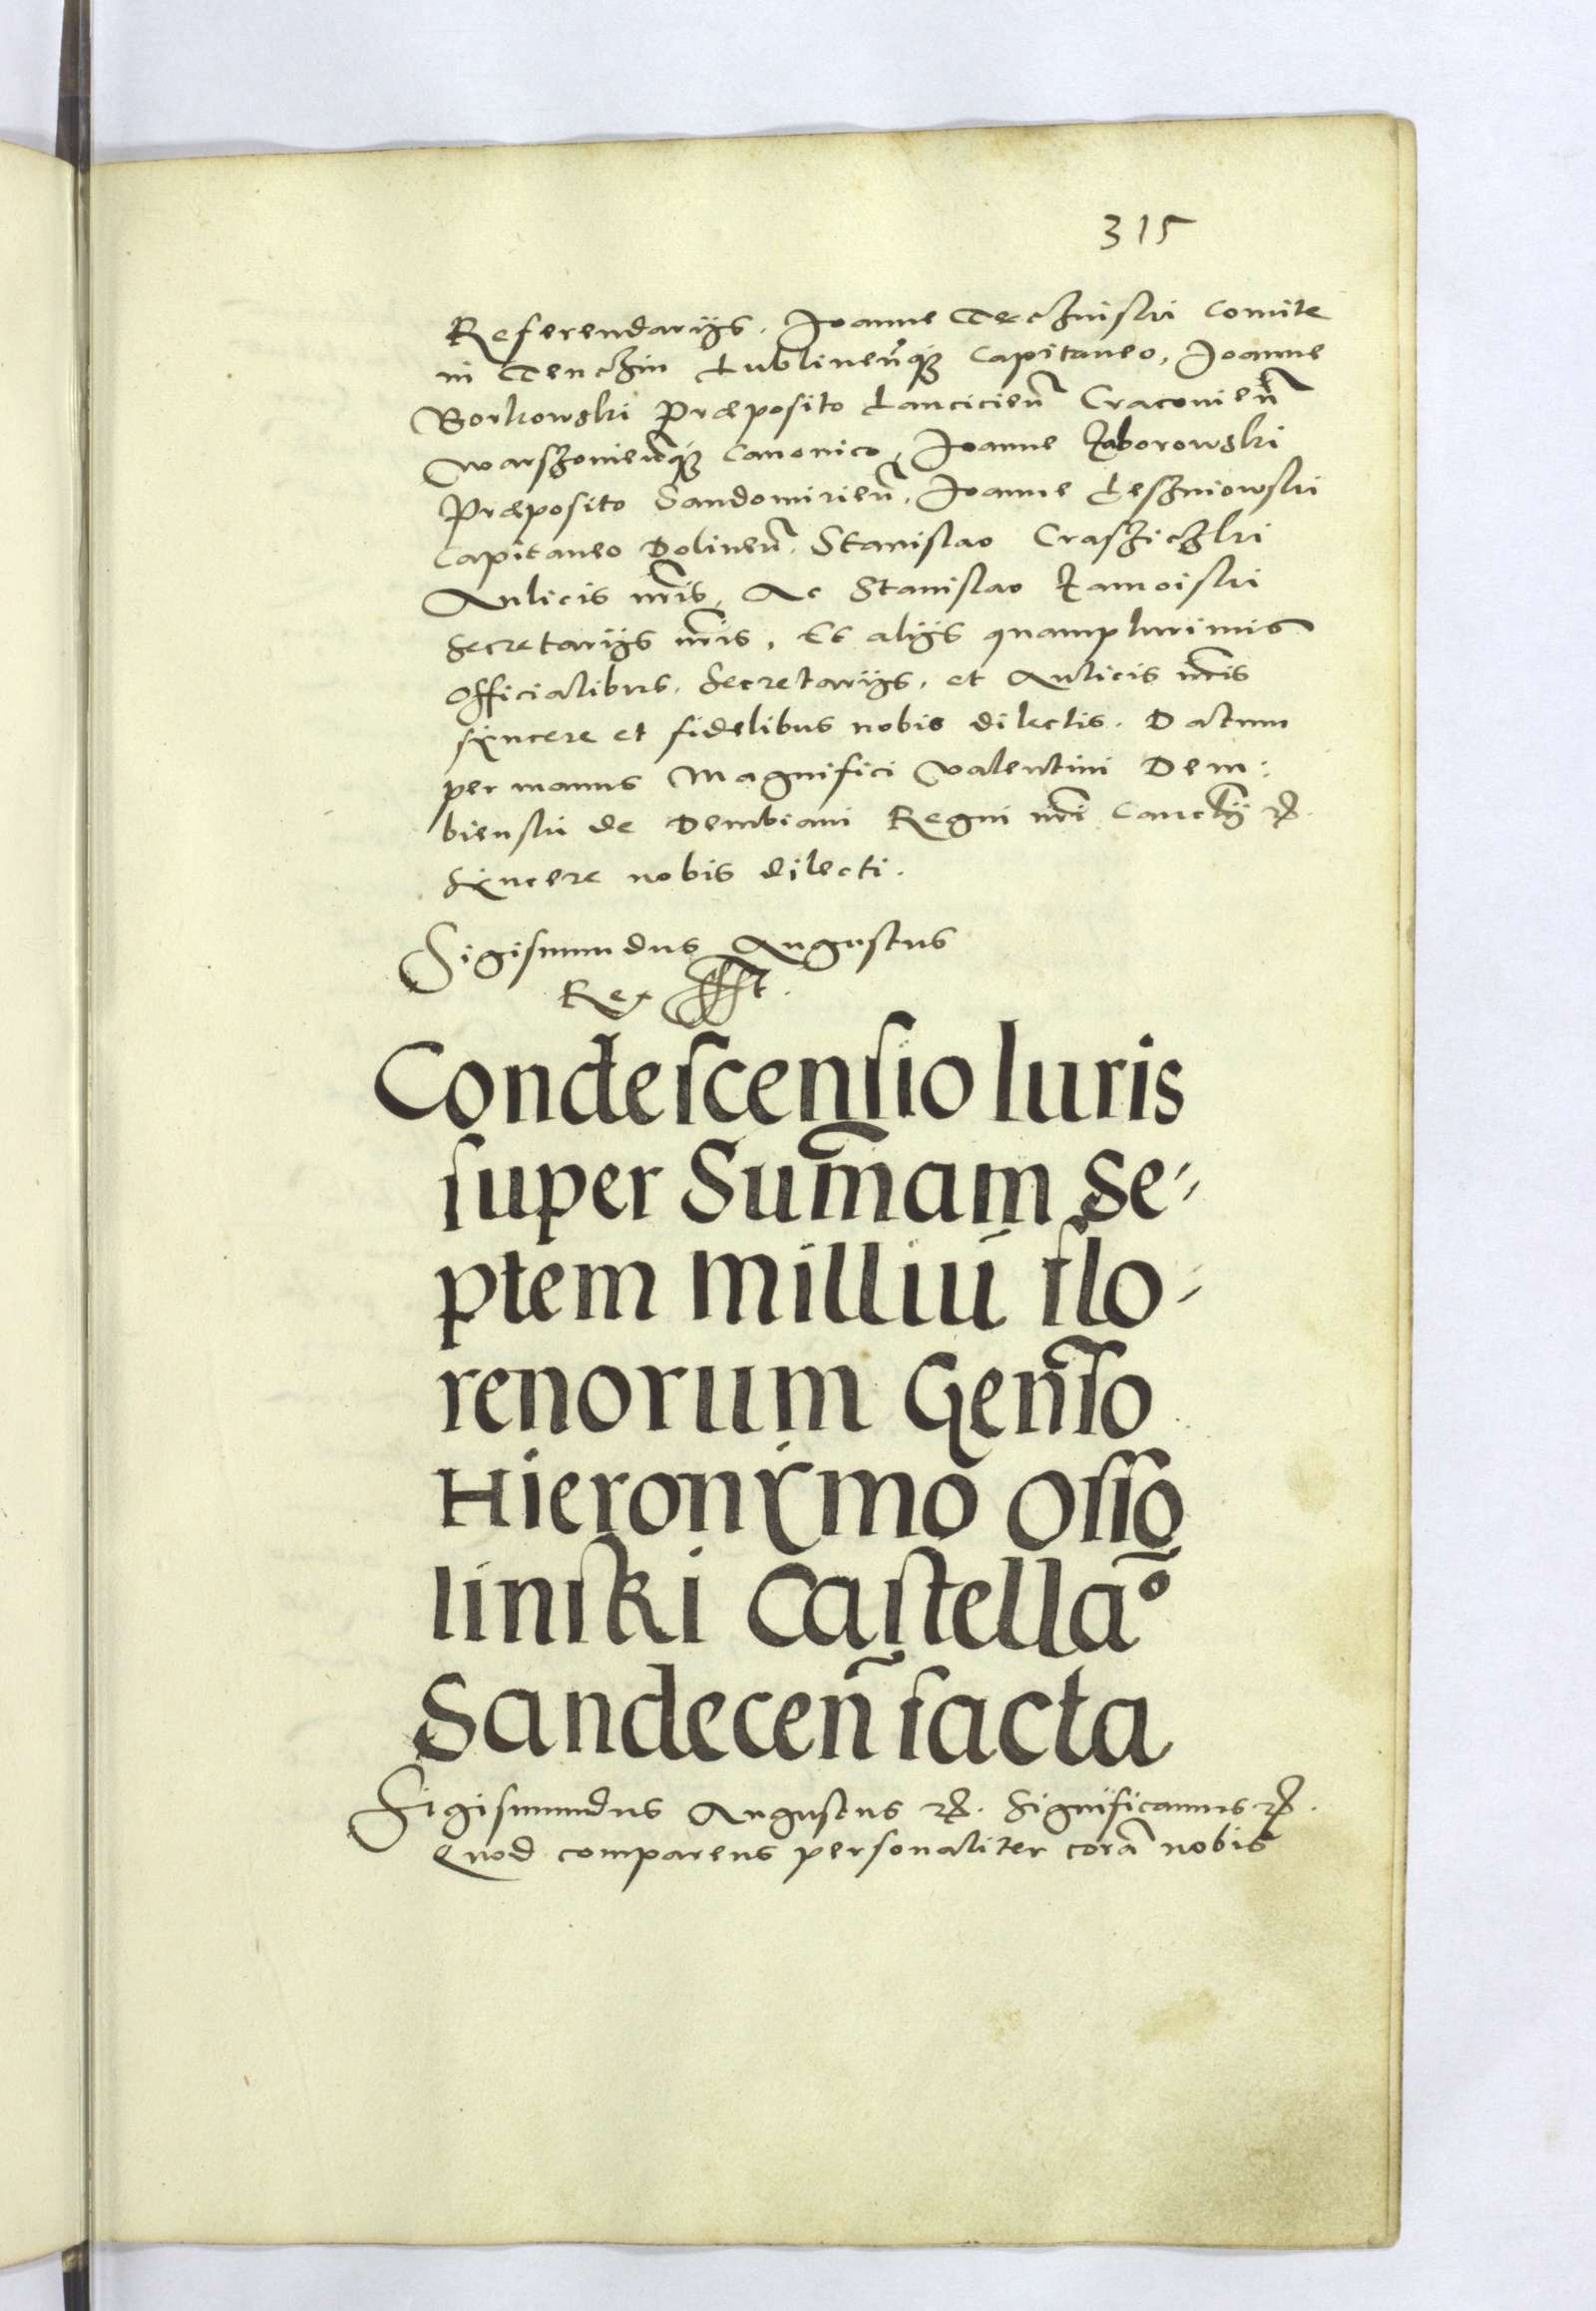 315
Referendarijs. Joanne Tęczinski Comite
in Tenczin Lublineñq₃ Capitaneo, Joanne
Borkowski Præposito Lancicieñ Cracovieñ
Warszovieñq₃ Canonico, Joanne Zaborowski
Præposito Sandomirieñ, Joanne Leszniowski
Capitaneo Dolineñ. Stanislao Crasziczki
Aulicis nr̃is, Ac Stanislao Zamoiski
Secretarijs nr̃is, Et alijs quamplurimis
Officialibus, Secretarijs, et Aulicis nr̃is
syncere et fidelibus nobis dilectis. Datum
per manus Magnifici Valentini Dem:
binski de Dembiani Regni nr̃i Canclrij &.
Syncere nobis dilecti.
Sigismundus Augustus
Rex sst.
Condescensio Iuris
super Sum̃am Se-
ptem Milliũ flo-
renorum Geñso
Hieronymo Osso
linski Castellã°
Sandeceñ facta
Sigismundus Augustus &. Significamus &.
Quod comparens personaliter corã nobis